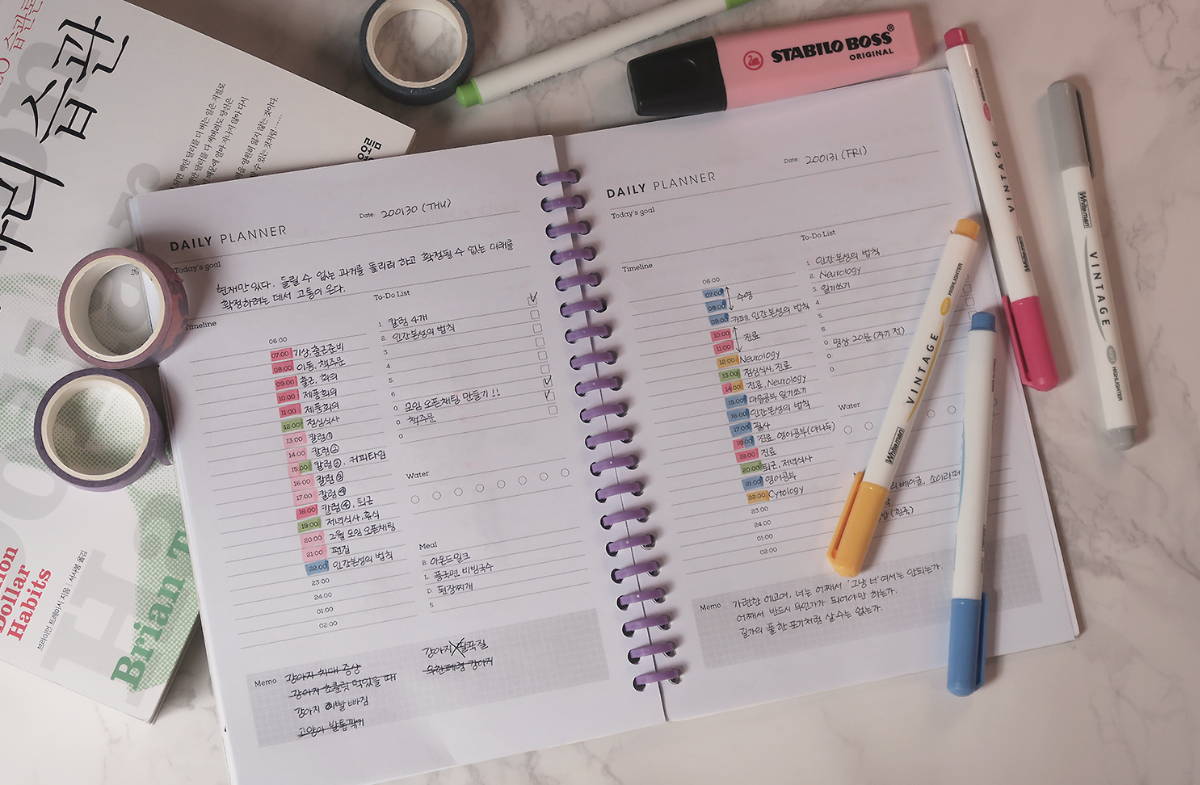 습관
Million
Dollar
Habits
브라이언 트레이시 지음 | 서사봉 옮김
Brian T
STABILO BOSS®
ORIGINAL
VINTAGE
Whiteman
Whiteman
VINTAGE
HIGHLIGHTER
HIGHLIGHTER
VINTAGE
Whiteman
Date. 200130 (THU)
DAILY PLANNER
Today's goal
현재만 있다. 돌릴 수 없는 과거를 돌리려 하고 확정될 수 없는 미래를
확정하려는 데서 고통이 온다.
Timeline
06:00
07:00 기상, 출근준비
08:00 이동, 책주문
09:00 출근, 회의
10:00 제품회의
11:00 제품회의
12:00 점심식사
13:00 칼럼①
14:00 칼럼②
15:00 칼럼②, 커피타임
16:00 칼럼③
17:00 칼럼④
18:00 칼럼④, 퇴근
19:00 저녁식사, 휴식
20:00 2월 모임 오픈채팅
21:00 편집
22:00 인간본성의 법칙
23:00
24:00
01:00
02:00
To-Do List
1. 칼럼 4개
2. 인간본성의 법칙
3.
4
5
6
0 모임 오픈채팅 만들기!!
0 책주문
0
Water
Meal
B 아몬드밀크
L 풀무원 비빔국수
D 된장찌개
S
Memo
강아지 치매 증상
강아지 초콜릿 먹었을 때
강아지 이빨 빠짐
고양이 발톱깎기
강아지 딸꾹질
Date. 200131 (FRI)
DAILY PLANNER
Today's goal
Timeline
06:00
07:00
08:00
수영
09:00 카페, 인간본성의 법칙
10:00
11:00
진료
12:00 Neurology
13:00 점심식사, 진료
14:00 진료, Neurology
15:00 마음공부, 일기쓰기
16:00 인간본성의 법칙
17:00 필사
18:00 진료, 영어공부(야나두)
19:00 진료
20:00 퇴근, 저녁식사
21:00 영어공부
22:00 Cytology
23:00
24:00
01:00
02:00
To-Do List
1. 인간본성의 법칙
2. Neurology
3. 일기쓰기
4
5
6
0 명상 20분 (자기 전)
0
0
Water
Memo
가련한 에고여, 너는 어째서 '그냥 너'여서는 안되는가.
어째서 반드시 무언가가 되어야만 하는가.
길가의 풀 한 포기처럼 살 수는 없는가.